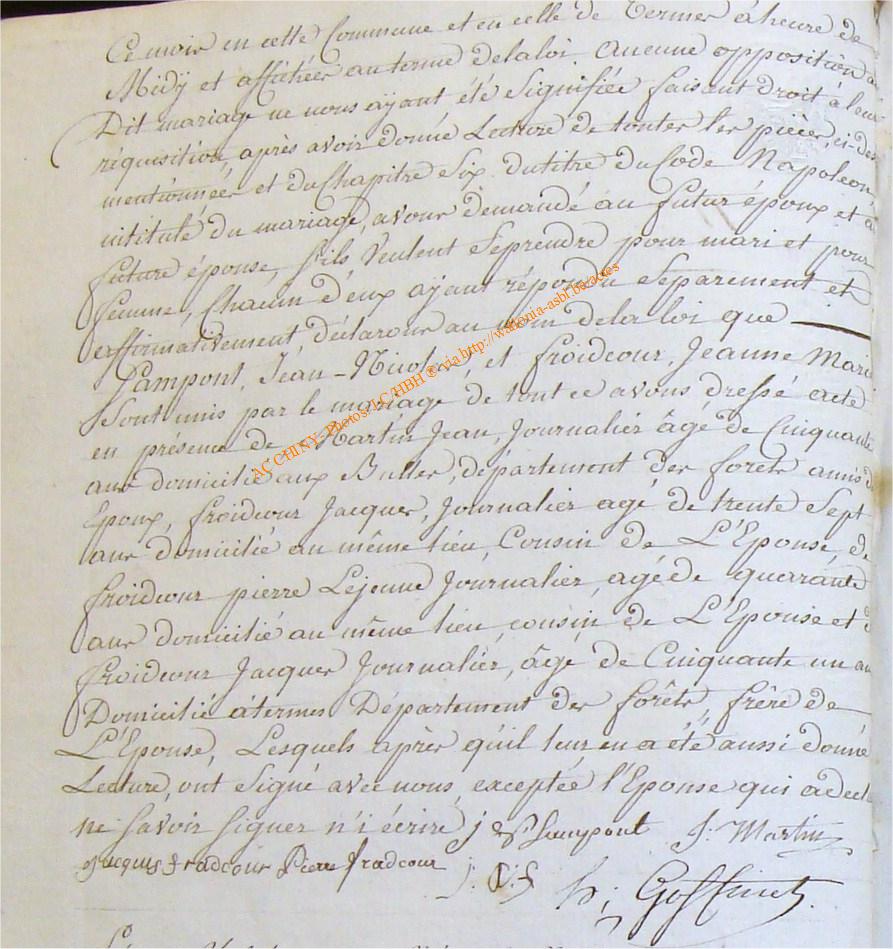 Ce mois en cette Commune et en celle de Termes à heure de
Midÿ et affichées au terme delaloi. Aucune opposition au
Dit mariage ne nous aÿant été Signifiée faisant droit à leur
réquisition, après avoir donné Lecture de toutes les pièces, ci-des
mentionnées et du Chapitre Six du titre du Code Napoleon
intitulé Du mariage, avons demandé au futur époux et à
future épouse, s'ils veulent Seprendre pour mari et pour
femme, Chacun d'eux aÿant répondu Séparement et
affirmativement déclarons au nom dela loi que
Pampont, Jéan-Nicolas, et froidcour, Jeanne Marie
Sont unis par le mariage de tout ce avons dressé acte
en présence de Martin Jean, Journalier âgé de Cinquante
ans domicilié aux Bulles, département des forêts amis d
Epoux, froidcour Jacques, Journalier agé de trente Sept
ans domicilié au même lieu, Cousin de L'Epouse, de
froidcour pierre Lejeune Journalier, agé de quarante
ans domicilié au même lieu, cousin de L'Epouse et d
froidcour Jacques Journalier, âgé de Cinquante un an
Domicilié à termes Département des forêts, frère de
L'Epouse, Lesquels après qu'il leur en a été aussi donné
Lecture, ont Signé avec nous, exceptée l'Epouse qui a decl
ne Savoir Signer n'i écrire j N pampont J: Martin
jacques fradcour Pierre fradcour
h; Goffinet
AC CHINY- Photos: LC/HBH ® via http://wallonia-asbl.be/actes